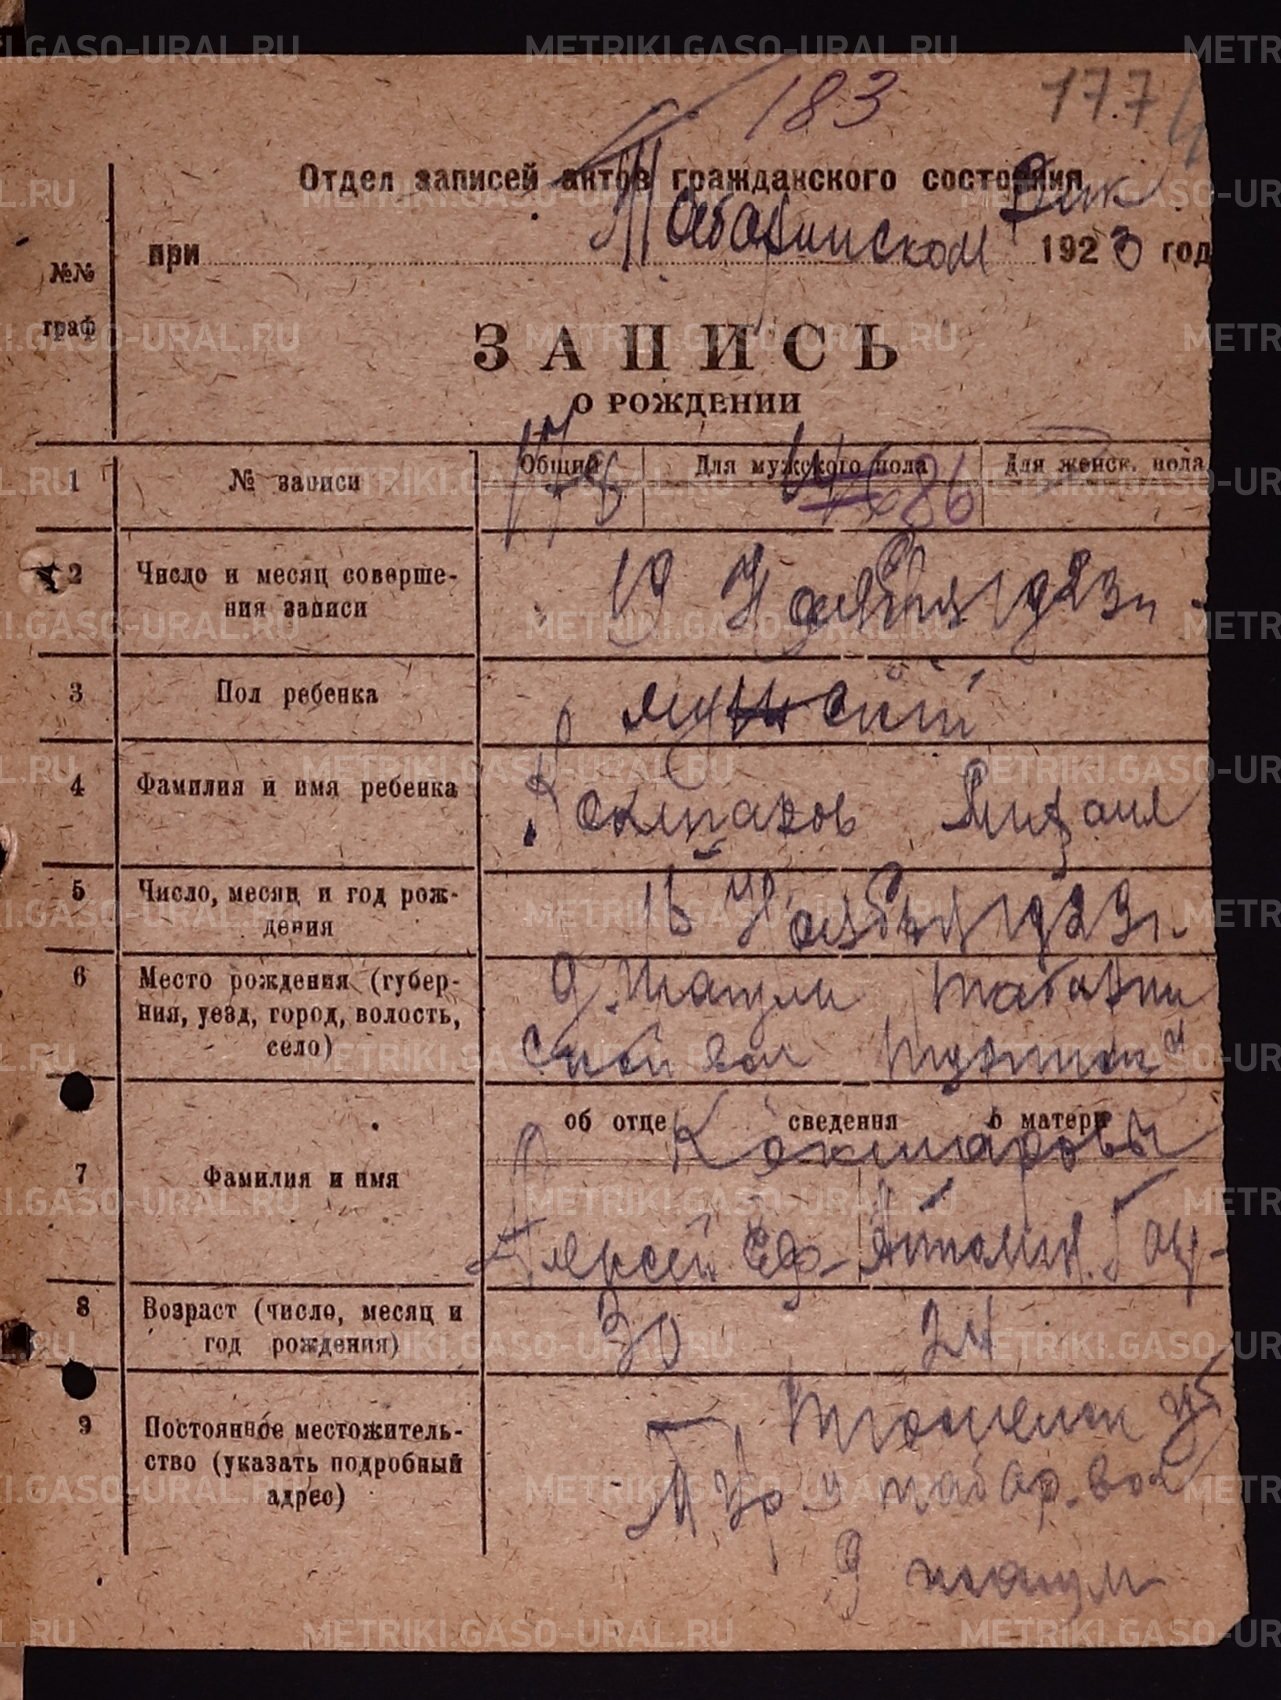 183
177
Отдел записей актов гражданского состояния
при Табаринском Вик 1923 год
№№ граф
ЗАПИСЬ
О РОЖДЕНИИ
1 № записи
Общий Для мужского пола Для женск. пола
175 86
2 Число и месяц соверше-
ния записи
19 Ноября 1923 г.
3 Пол ребенка
мужской
4 Фамилия и имя ребенка
Кокшаров Михаил
5 Число, месяц и год рож-
дения
16 Ноября 1923 г.
6 Место рождения (губер-
ния, уезд, город, волость,
село)
д. Табарин
ской вол
об отце сведения о матери
Кокшаровы
7 Фамилия и имя
Алексей Еф
8 Возраст (число, месяц и
год рождения)
30 24
9 Постоянное местожитель-
ство (указать подробный
адрес)
Тюменск губ
Тур у табор. вол
д
METRIKI.GASO-URAL.RU